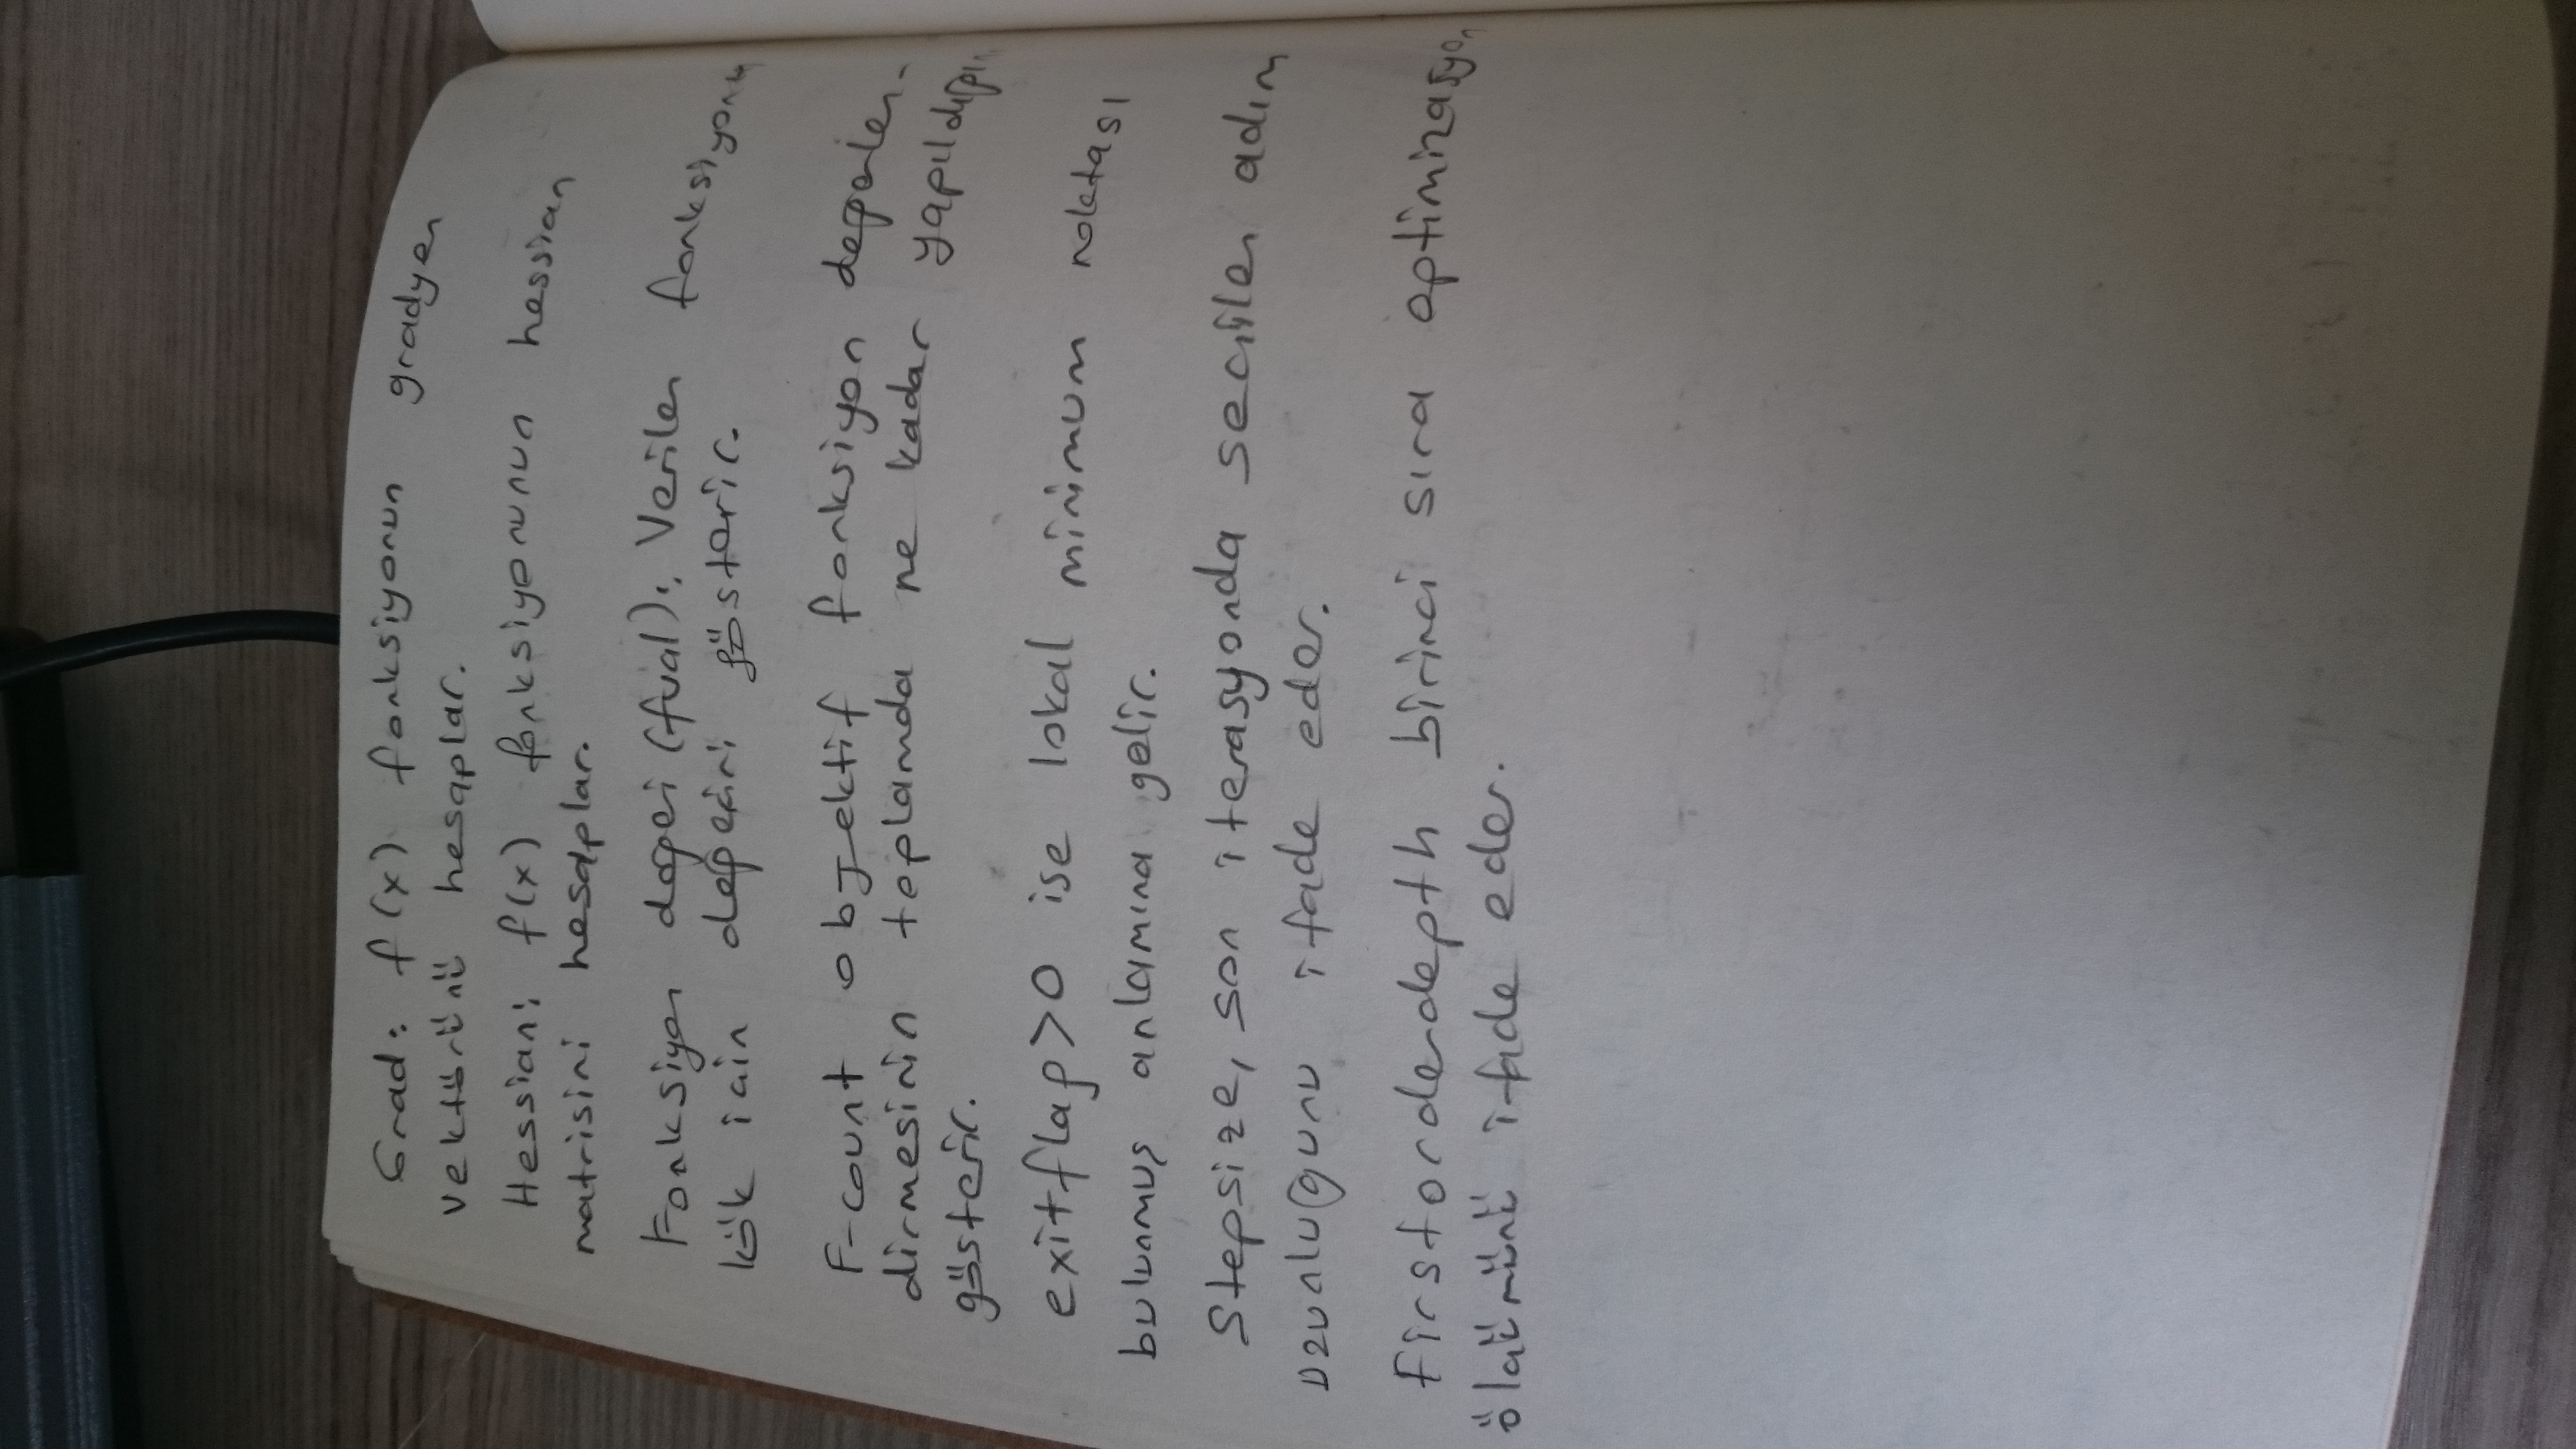 Grad: f(x) fonksiyonun gradyen
vektörünü hesaplar.
Hessian: f(x) fonksiyonunun hessian
matrisini hesaplar.
Fonksiyon değeri (fval): Verilen fonksiyonun
kök için değerini gösterir.
F-count objektif fonksiyon değerlen-
dirmesinin toplamda ne kadar yapıldığını
gösterir.
exitflag>0 ise lokal minimum noktası
bulunmuş anlamına gelir.
Stepsize, son iterasyonda seçilen adım
uzunluğunu ifade eder.
Firstorderdepth birinci sıra optimizasyon
ölçümünü ifade eder.